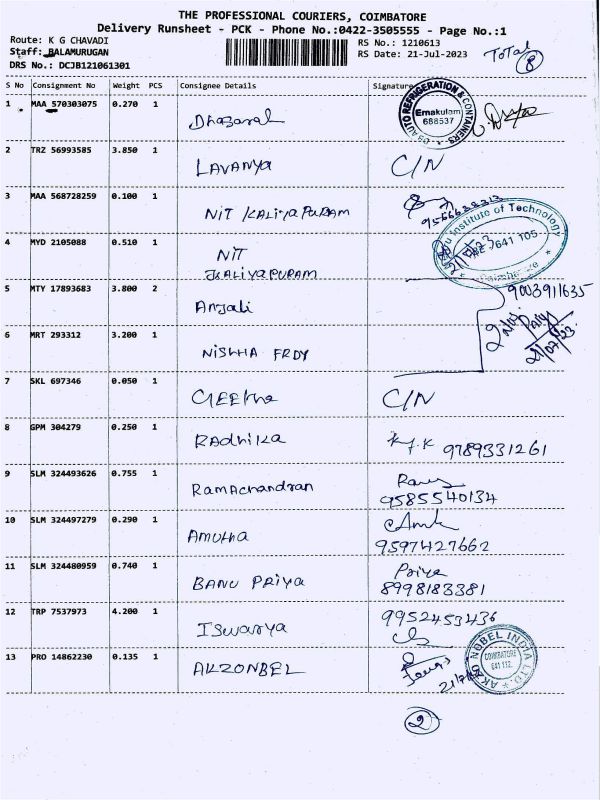 THE PROFESSIONAL COURIERS, COIMBATORE
Delivery Runsheet - PCK - Phone No.:0422-3505555 - Page No.:1
Route: K G CHAVADI
RS No.: 1210613
Staff: BALAMURUGAN
RS Date: 21-Jul-2023
DRS No.: DCJB121061301
Total
8
S No Consignment No Weight PCS Consignee Details Signature
1 MAA 570303075 0.270 1
AUTO REFRIGERATION & CONTAINERS
Ernakulam
688537
2 TRZ 56993585 3.850 1 LAVANYA C/N
3 MAA 568728259 0.100 1 NIT /KALIYAPURAM
4 MYD 2105088 0.510 1 NIT
KALIYAPURAM
Institute of Technology
641 105
5 MTY 17893683 3.800 2 Anjali 9003911635
2 Nos
21/07/23
6 MRT 293312 3.200 1 NISHHA FRDY
7 SKL 697346 0.050 1 GEETHA C/N
8 GPM 304279 0.250 1 RADhiKA 9789331261
9 SLM 324493626 0.755 1 RAMAChandRan
9585540134
10 SLM 324497279 0.290 1 AMUtHA
9597427662
11 SLM 324480959 0.740 1 BANU PRIYA Priya
8998183381
12 TRP 7537973 4.200 1 ISWARYA 9952453436
13 PRO 14862230 0.135 1 AKZONBEL
AKZO NOBEL INDIA LTD.
COIMBATORE
641 112.
2